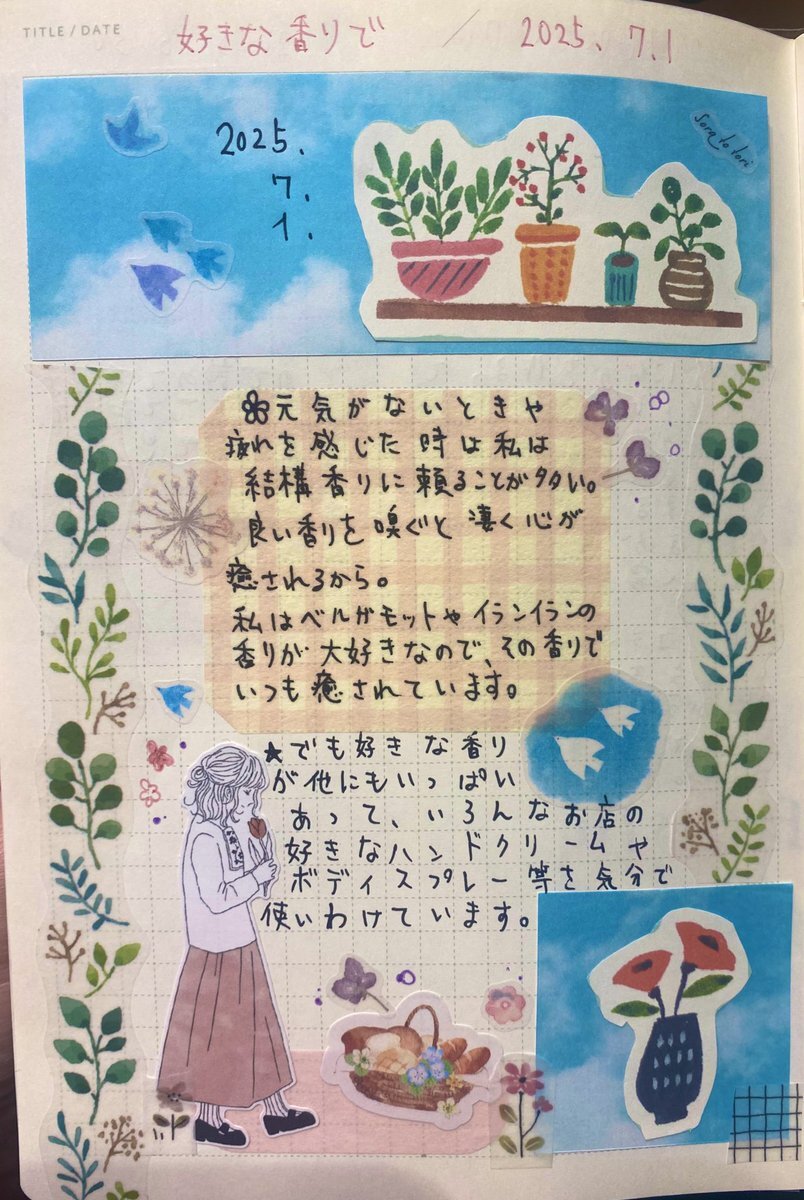 TITLE / DATE
好きな香りで / 2025. 7.1
2025.
7.
1.
Sora to tori
元気がないときや
疲れを感じた時は私は
結構香りに頼ることが多い。
良い香りを嗅ぐと凄く心が
癒されるから。
私はベルガモットやイランイランの
香りが大好きなので、その香りで
いつも癒されています。
★でも好きな香り
が他にもいっぱい
あって、いろんなお店の
好きなハンドクリームや
ボディスプレー等を気分で
使いわけています。